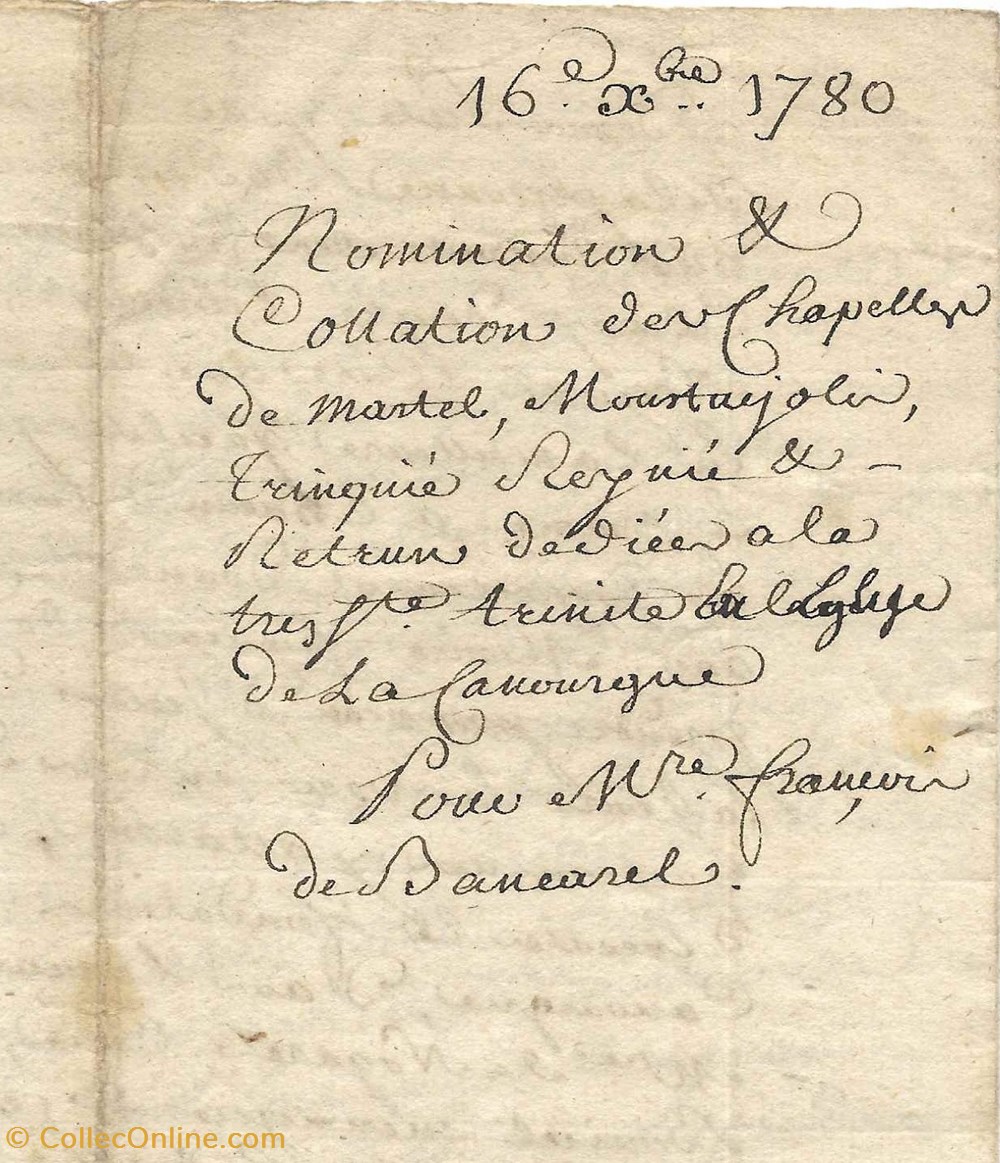 16.e xbre.. 1780
Nomination &
Collation des Chapelles
de martel, Moustajolis,
Trinquié Reynié & -
Retrun dediées a la
tres Ste. trinite En l'Eglise
de La Canourgue
Pour Mre. françois
de Bancarel.
© CollecOnline.com